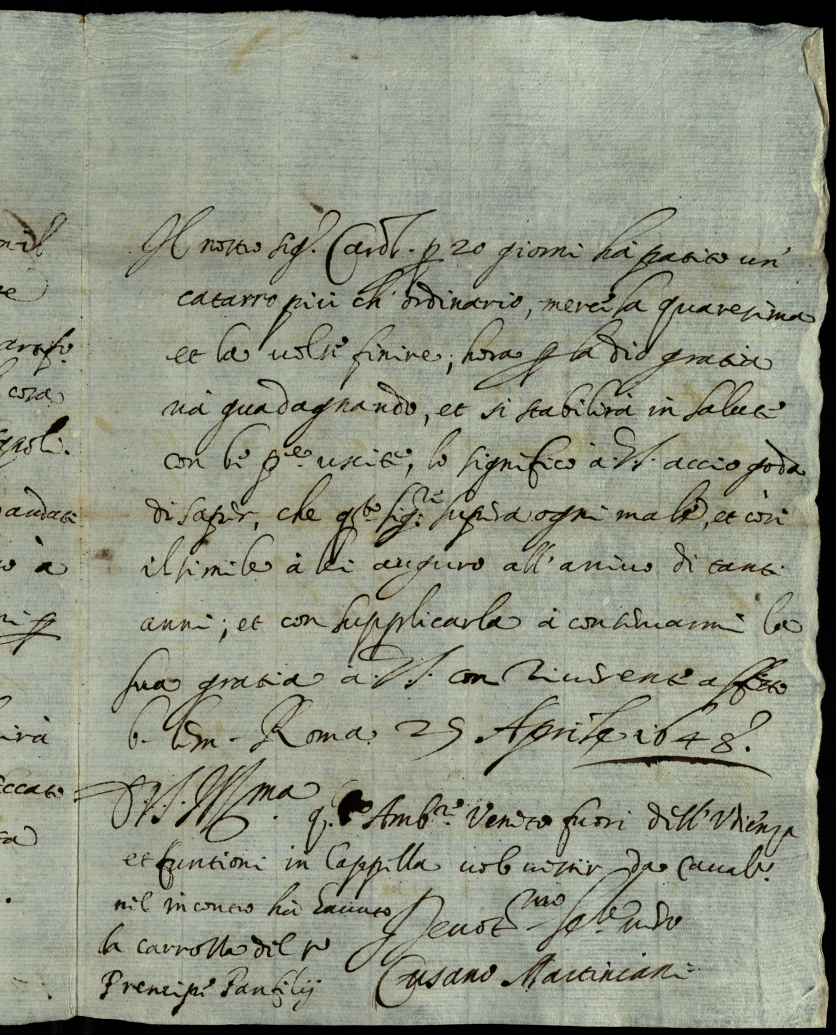 Il nostro Sig.r Card.l p 20 giorni hà patito un'
catarro più ch'ordinario, mercè la quaresima
et la volse finire; hora p la Dio gratia
và guadagnando, et si stabilirà in salute
con le p.e uscite, lo significo à V.S. acciò goda
di saper, che q.to Sig.re supera ogni male, et così
il simile à lei auguro all'arrivo di tanti
anni; et con supplicarla à continuarmi la
sua gratia à V.S. con riverente affetto
b. le m. Roma 25 Aprile 1648.
D V.S. Ill.ma
q.to Amb.re Veneto fuori dell'Udienza
et funtioni in Cappella vol vestir da Caval.r
nel incontro hà havuto
la carrozza del
Prencipe Panfilij
Devot.mo Ser.re
Cusano Martiniani